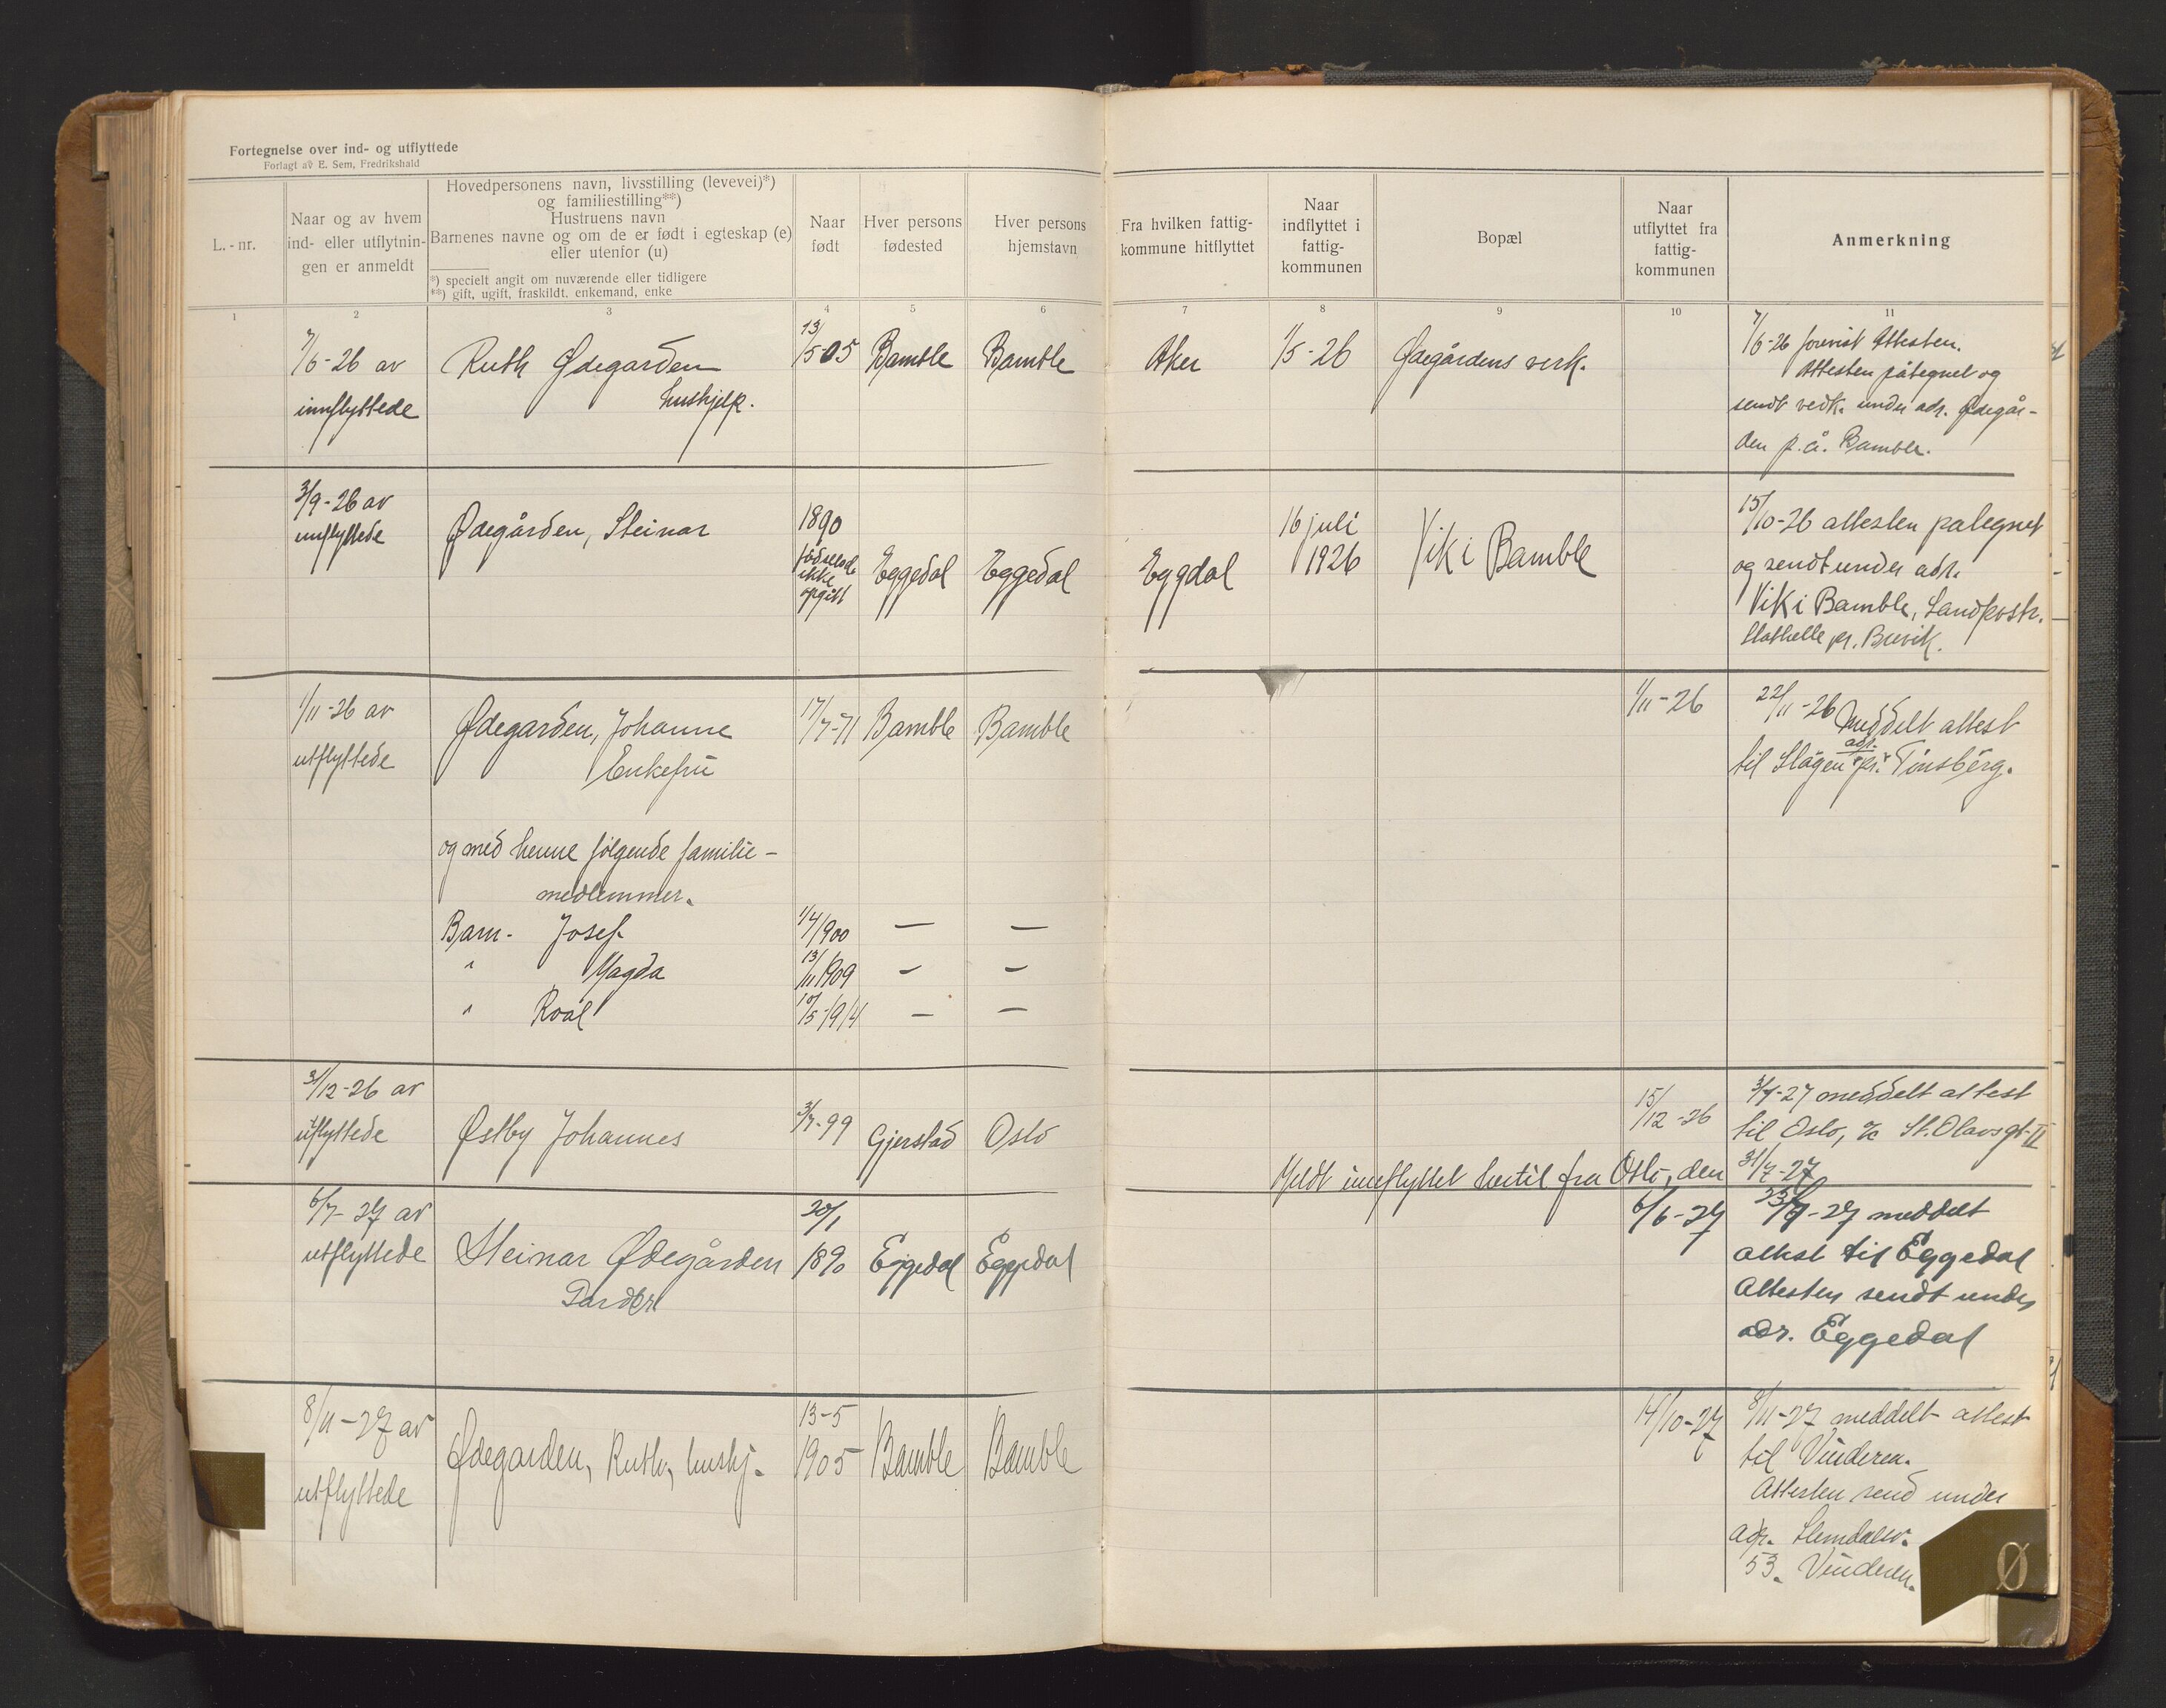 Fortegnelse over ind- og utflyttede
Forlagt av E. Sem, Fredrikshald
L.-nr.
Naar og av hvem
ind- eller utflytnin-
gen er anmeldt
Hovedpersonens navn, livsstilling (levevei)*)
og familiestilling**)
Hustruens navn
Barnenes navne og om de er født i egteskap (e)
eller utenfor (u)
*) specielt angit om nuværende eller tidligere
**) gift, ugift, fraskildt, enkemand, enke
Naar
født
Hver persons
fødested
Hver persons
hjemstavn
Fra hvilken fattig-
kommune hitflyttet
Naar
indflyttet i
fattig-
kommunen
Bopæl
Naar
utflyttet fra
fattig-
kommunen
Anmerkning
1 2 3 4 5 6 7 8 9 10 11
7/6-26 av
innflyttede
Ruth Ødegarden
hushjelp.
13/5-05
Bamble
Bamble
Aker
1/5-26
Ødegårdens verk.
7/6-26 forevist Attesten.
Attesten påtegnet og
sendt vedk. under adr. Ødegår-
den p.å. Bamble.
3/9-26 av
innflyttede
Ødegården, Steinar
1890
fødselsd.
ikke
opgitt
Eggedal
Eggedal
Eggdal
16 juli
1926
Vik i Bamble
15/10-26 attesten påtegnet
og sendt under adr.
Vik i Bamble, Landpostr.
Stathelle pr. Brevik.
1/11-26 av
utflyttede
Ødegarden, Johanne
Enkefru
17/7-71
Bamble
Bamble
1/11-26
22/11-26 Meddelt attest
adr.
til Slagen pr. Tønsberg.
og med henne følgende familie-
medlemmer.
Barn- Josef
1/4/900
— —
" Magda
13/11 1909
— —
" Roal
10/5-1914
— —
3/12-26 av
utflyttede
Østby Johannes
3/7-99
Gjerstad
Oslo
15/12-26
3/7-27 meddelt attest
til Oslo, %c St. Olavsgt. II
Meldt inneflyttet hertil fra Oslo, den 31/7-27
6/7-27 av
utflyttede
Steinar Ødegården
20/1
1890
Eggedal
Eggedal
6/6-27
23/7-27 meddelt
attest til Eggedal
Attesten sendt under
adr. Eggedal
8/11-27 av
utflyttede
Ødegarden, Ruth, hushj.
13-5
1905
Bamble
Bamble
14/10-27
8/11-27 meddelt attest
til Vinderen.
Attesten send under
adr. Slemdalsv.
53. Vinderen.
Ø